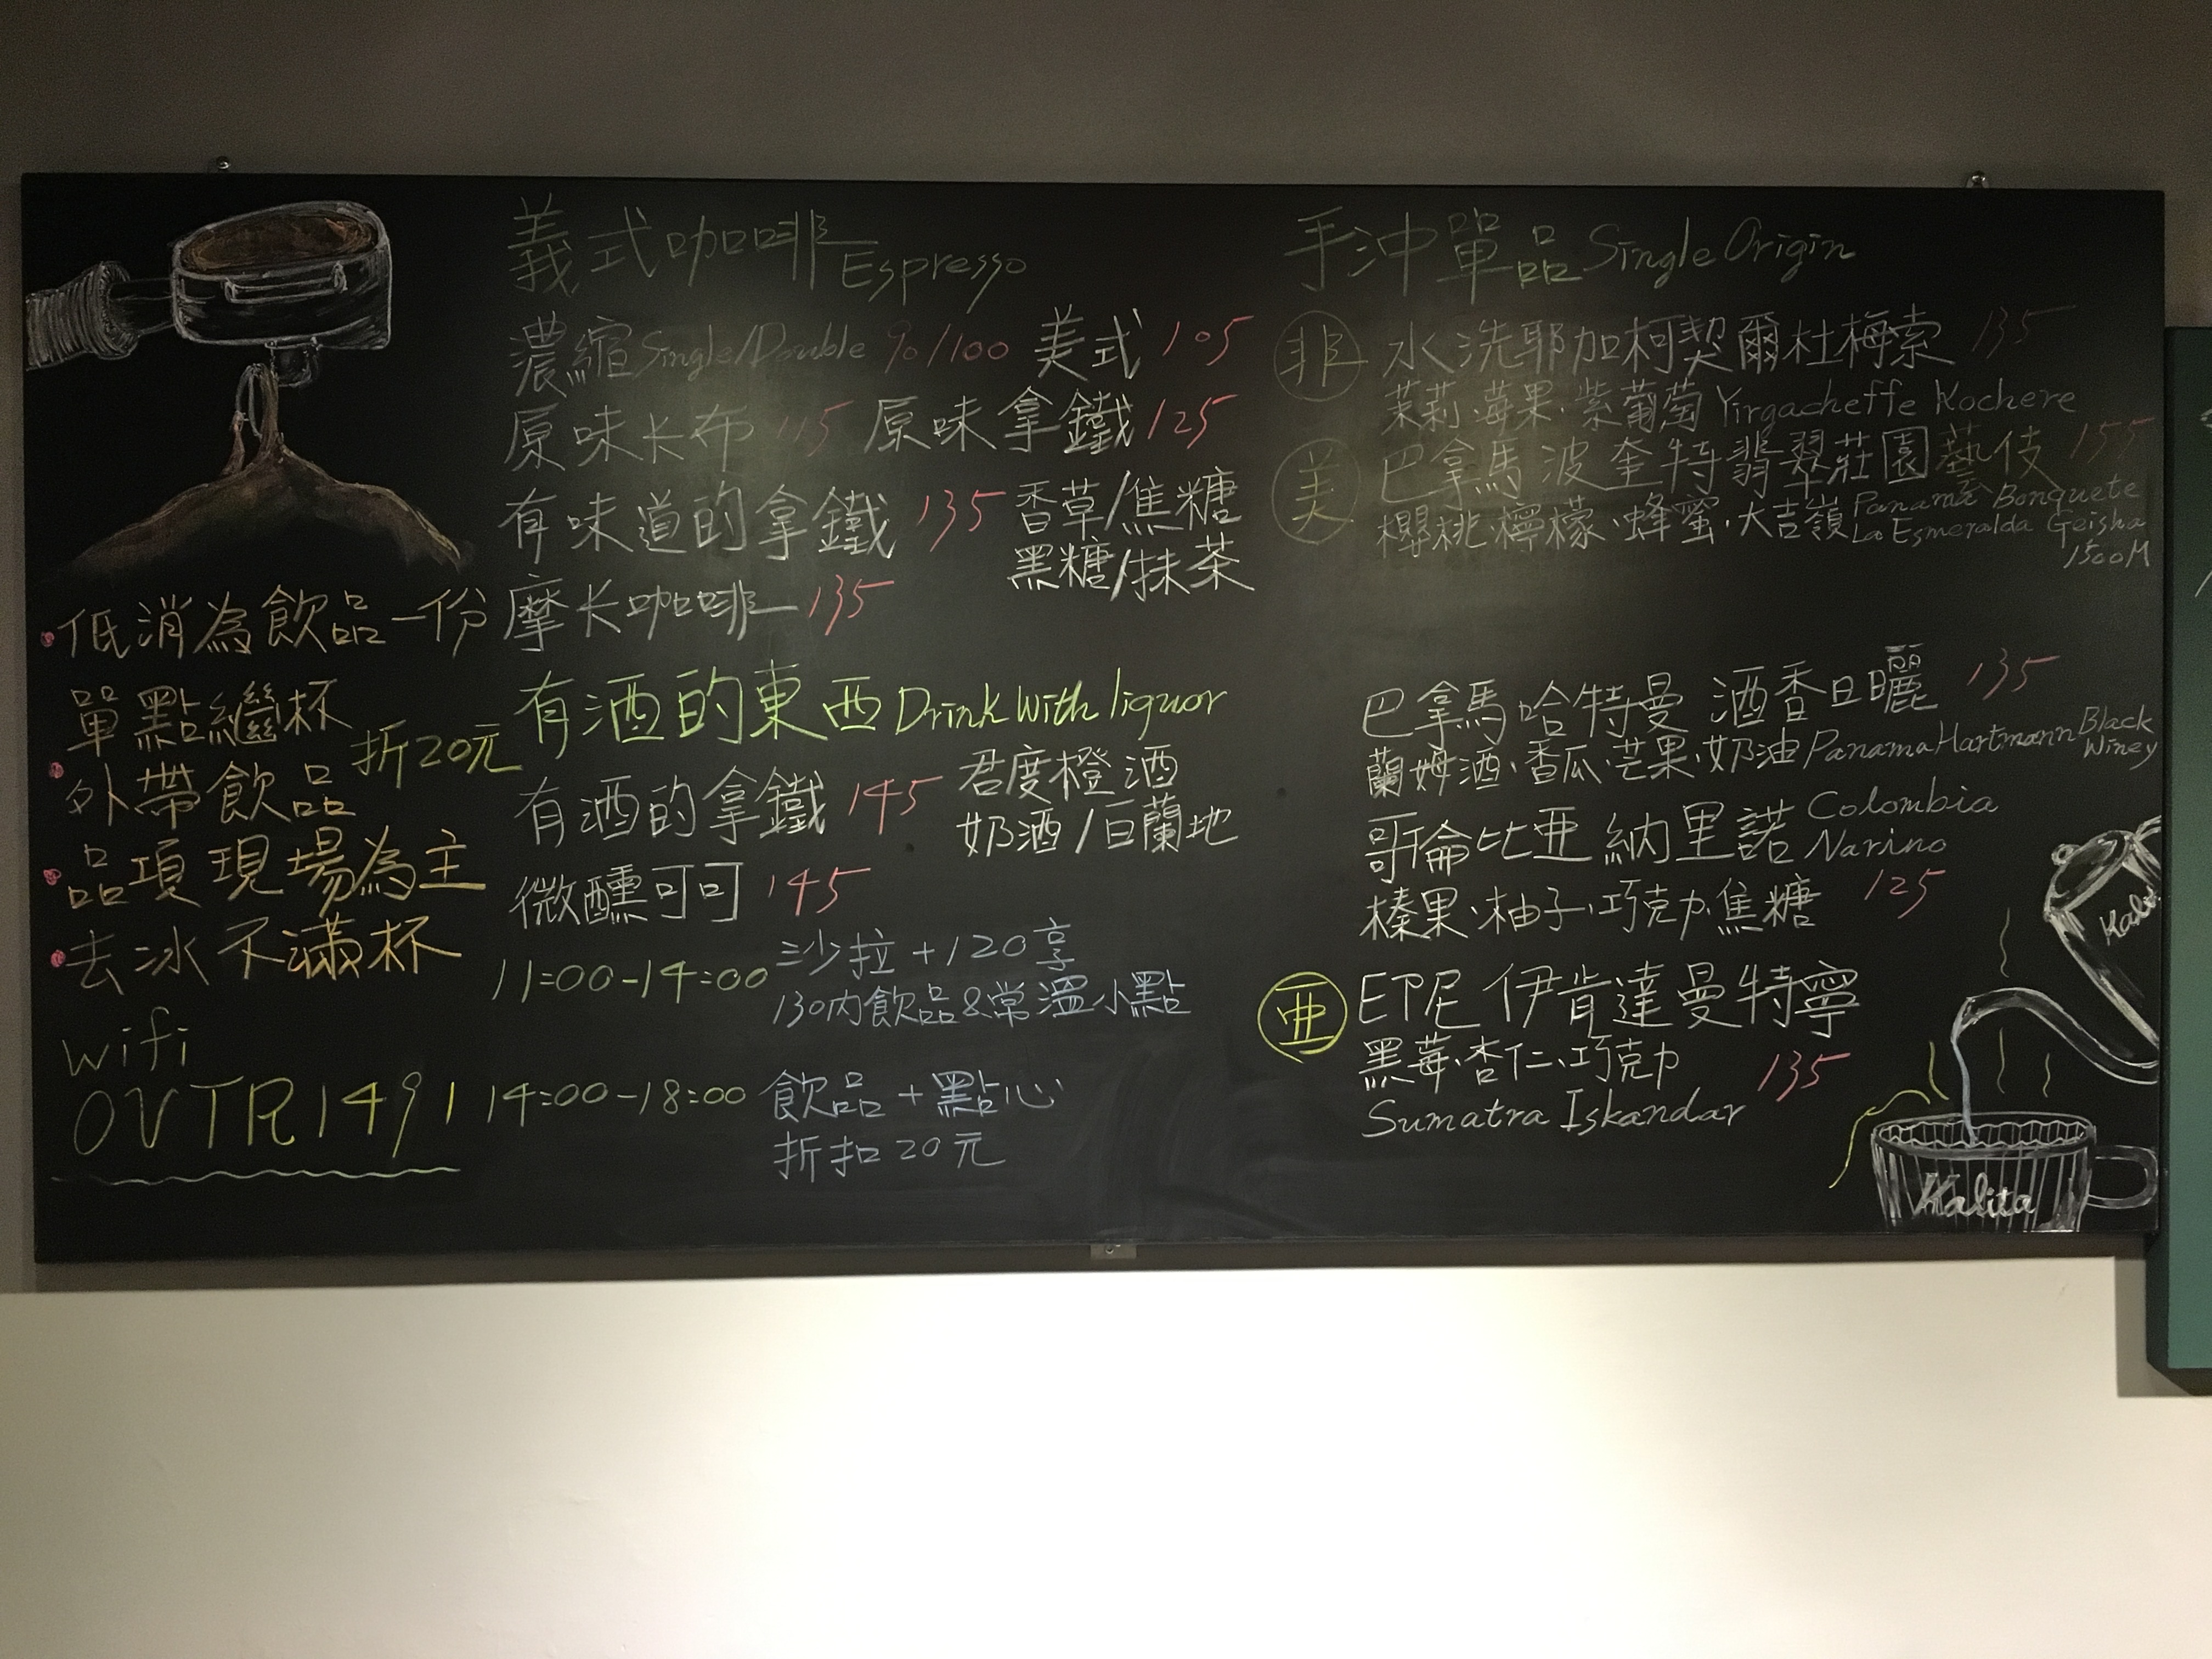 義式咖啡 Espresso
濃縮 Single/Double 90/100 美式 105
原味卡布 115 原味拿鐵 125
有味道的拿鐵 135 香草/焦糖
黑糖/抹茶
摩卡咖啡 135
有酒的東西 Drink With liquor
有酒的拿鐵 145 君度橙酒
奶酒/白蘭地
微醺可可 145
11:00-14:00 沙拉+120享
130內飲品&常溫小點
14:00-18:00 飲品+點心
折扣20元
低消為飲品一份
單點續杯
外帶飲品 折20元
品項現場為主
去冰不滿杯
wifi
OVTR1491
手沖單品 Single Origin
非 水洗耶加柯契爾杜梅索 135
茉莉·莓果·紫葡萄 Yirgacheffe Kochere
美 巴拿馬波奎特翡翠莊園藝伎 155
櫻桃·檸檬·蜂蜜·大吉嶺 Panama Bonquete
La Esmeralda Geisha
1500M
巴拿馬哈特曼 酒香日曬 135
蘭姆酒·香瓜·芒果·奶油 Panama Hartmann Black
Winey
哥倫比亞 納里諾 Colombia
Narino
榛果·柚子·巧克力·焦糖 125
亞 印尼 伊肯達曼特寧
黑莓·杏仁·巧克力 135
Sumatra Iskandar
Kalita